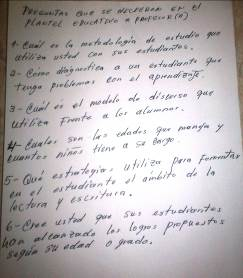 PREGUNTAS QUE SE HICIERON EN EL
PLANTEL EDUCATIVO A PROFESOR(A)
1- Cuál es la metodología de estudio que
utiliza usted con sus estudiantes.
2- Cómo diagnostica a un estudiante que
tenga problemas con el aprendizaje.
3- Cuál es el modelo de discurso que
utiliza frente a los alumnos.
4- Cuáles son las edades que maneja y
cuantos niños tiene a su cargo.
5- Qué estrategias utiliza para fomentar
en el estudiante el ámbito de la
lectura y escritura.
6- Cree usted que sus estudiantes
han alcanzado los logros propuestos
según su edad o grado.